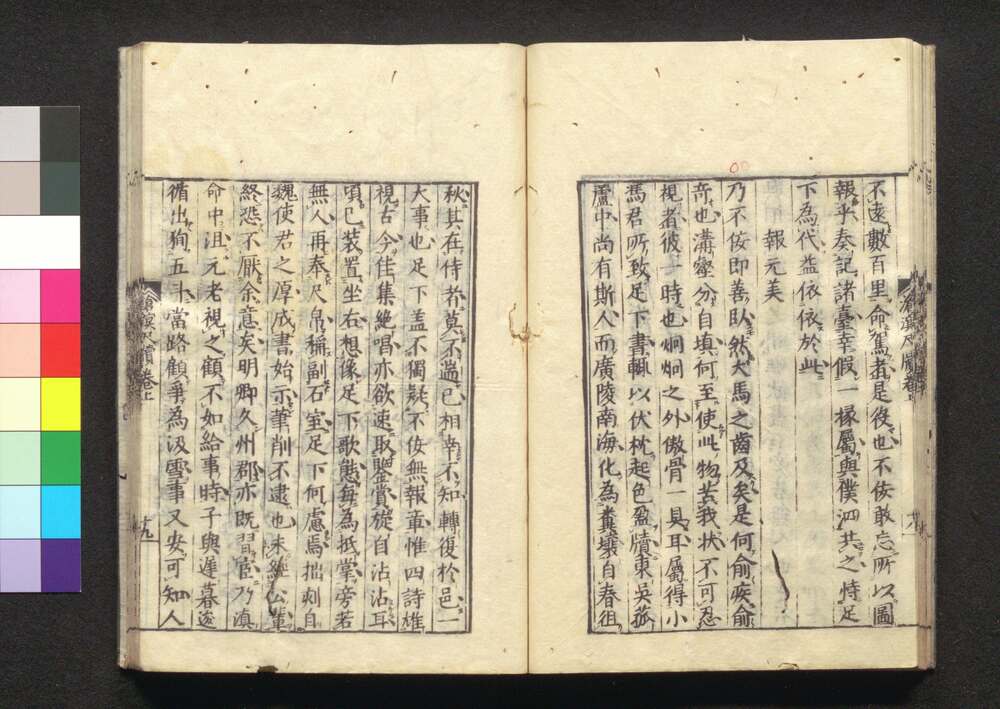 不遠數百里命駕者是役也不佞敢忘所以圖
報乎奏記諸臺幸假一椽屬與僕泗共之恃足
下為代益依依於此
報元美
乃不佞即善臥然犬馬之齒及矣是何俞疾俞
奇也溝壑分自填何至使此物苦我狀不可忍
視者彼一時也炯炯之外傲骨一具耳屬得小
馮君所致足下書輒以伏枕起色盈牘東吳菰
蘆中尚有斯人而廣陵南海化為糞壤自春徂
秋其在侍者莫不遄已相幸不知轉復於邑一
大事也足下蓋不獨疑不佞無報章惟四詩雄
視古今佳集絶唱亦欲速取鑒賞旋自沾沾耳
頃已裝置坐右想像足下歌態每為抵掌旁若
無人再奉尺帛稱副石室足下何慮焉拙刻自
魏使君之厚成書始示筆削不逮也未經公輩
終恐不厭余意矣明卿久州郡亦既習宦乃滇
命中沮元老視之顧不如給事時子與遲暮遂
循出狗五斗當路顧爭為汲雪事又安可知人
滄溟尺牘卷上
十九
滄溟尺牘卷上